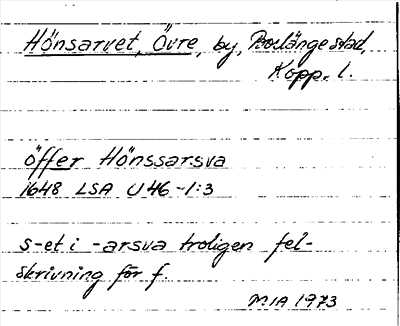 Hönsarvet, Övre, by, Borlänge stad
Kopp. l.
öffer Hönssarsva
1648 LSA U46-1:3
s-et i -arsva troligen fel-
skrivning för f
MIA 1973